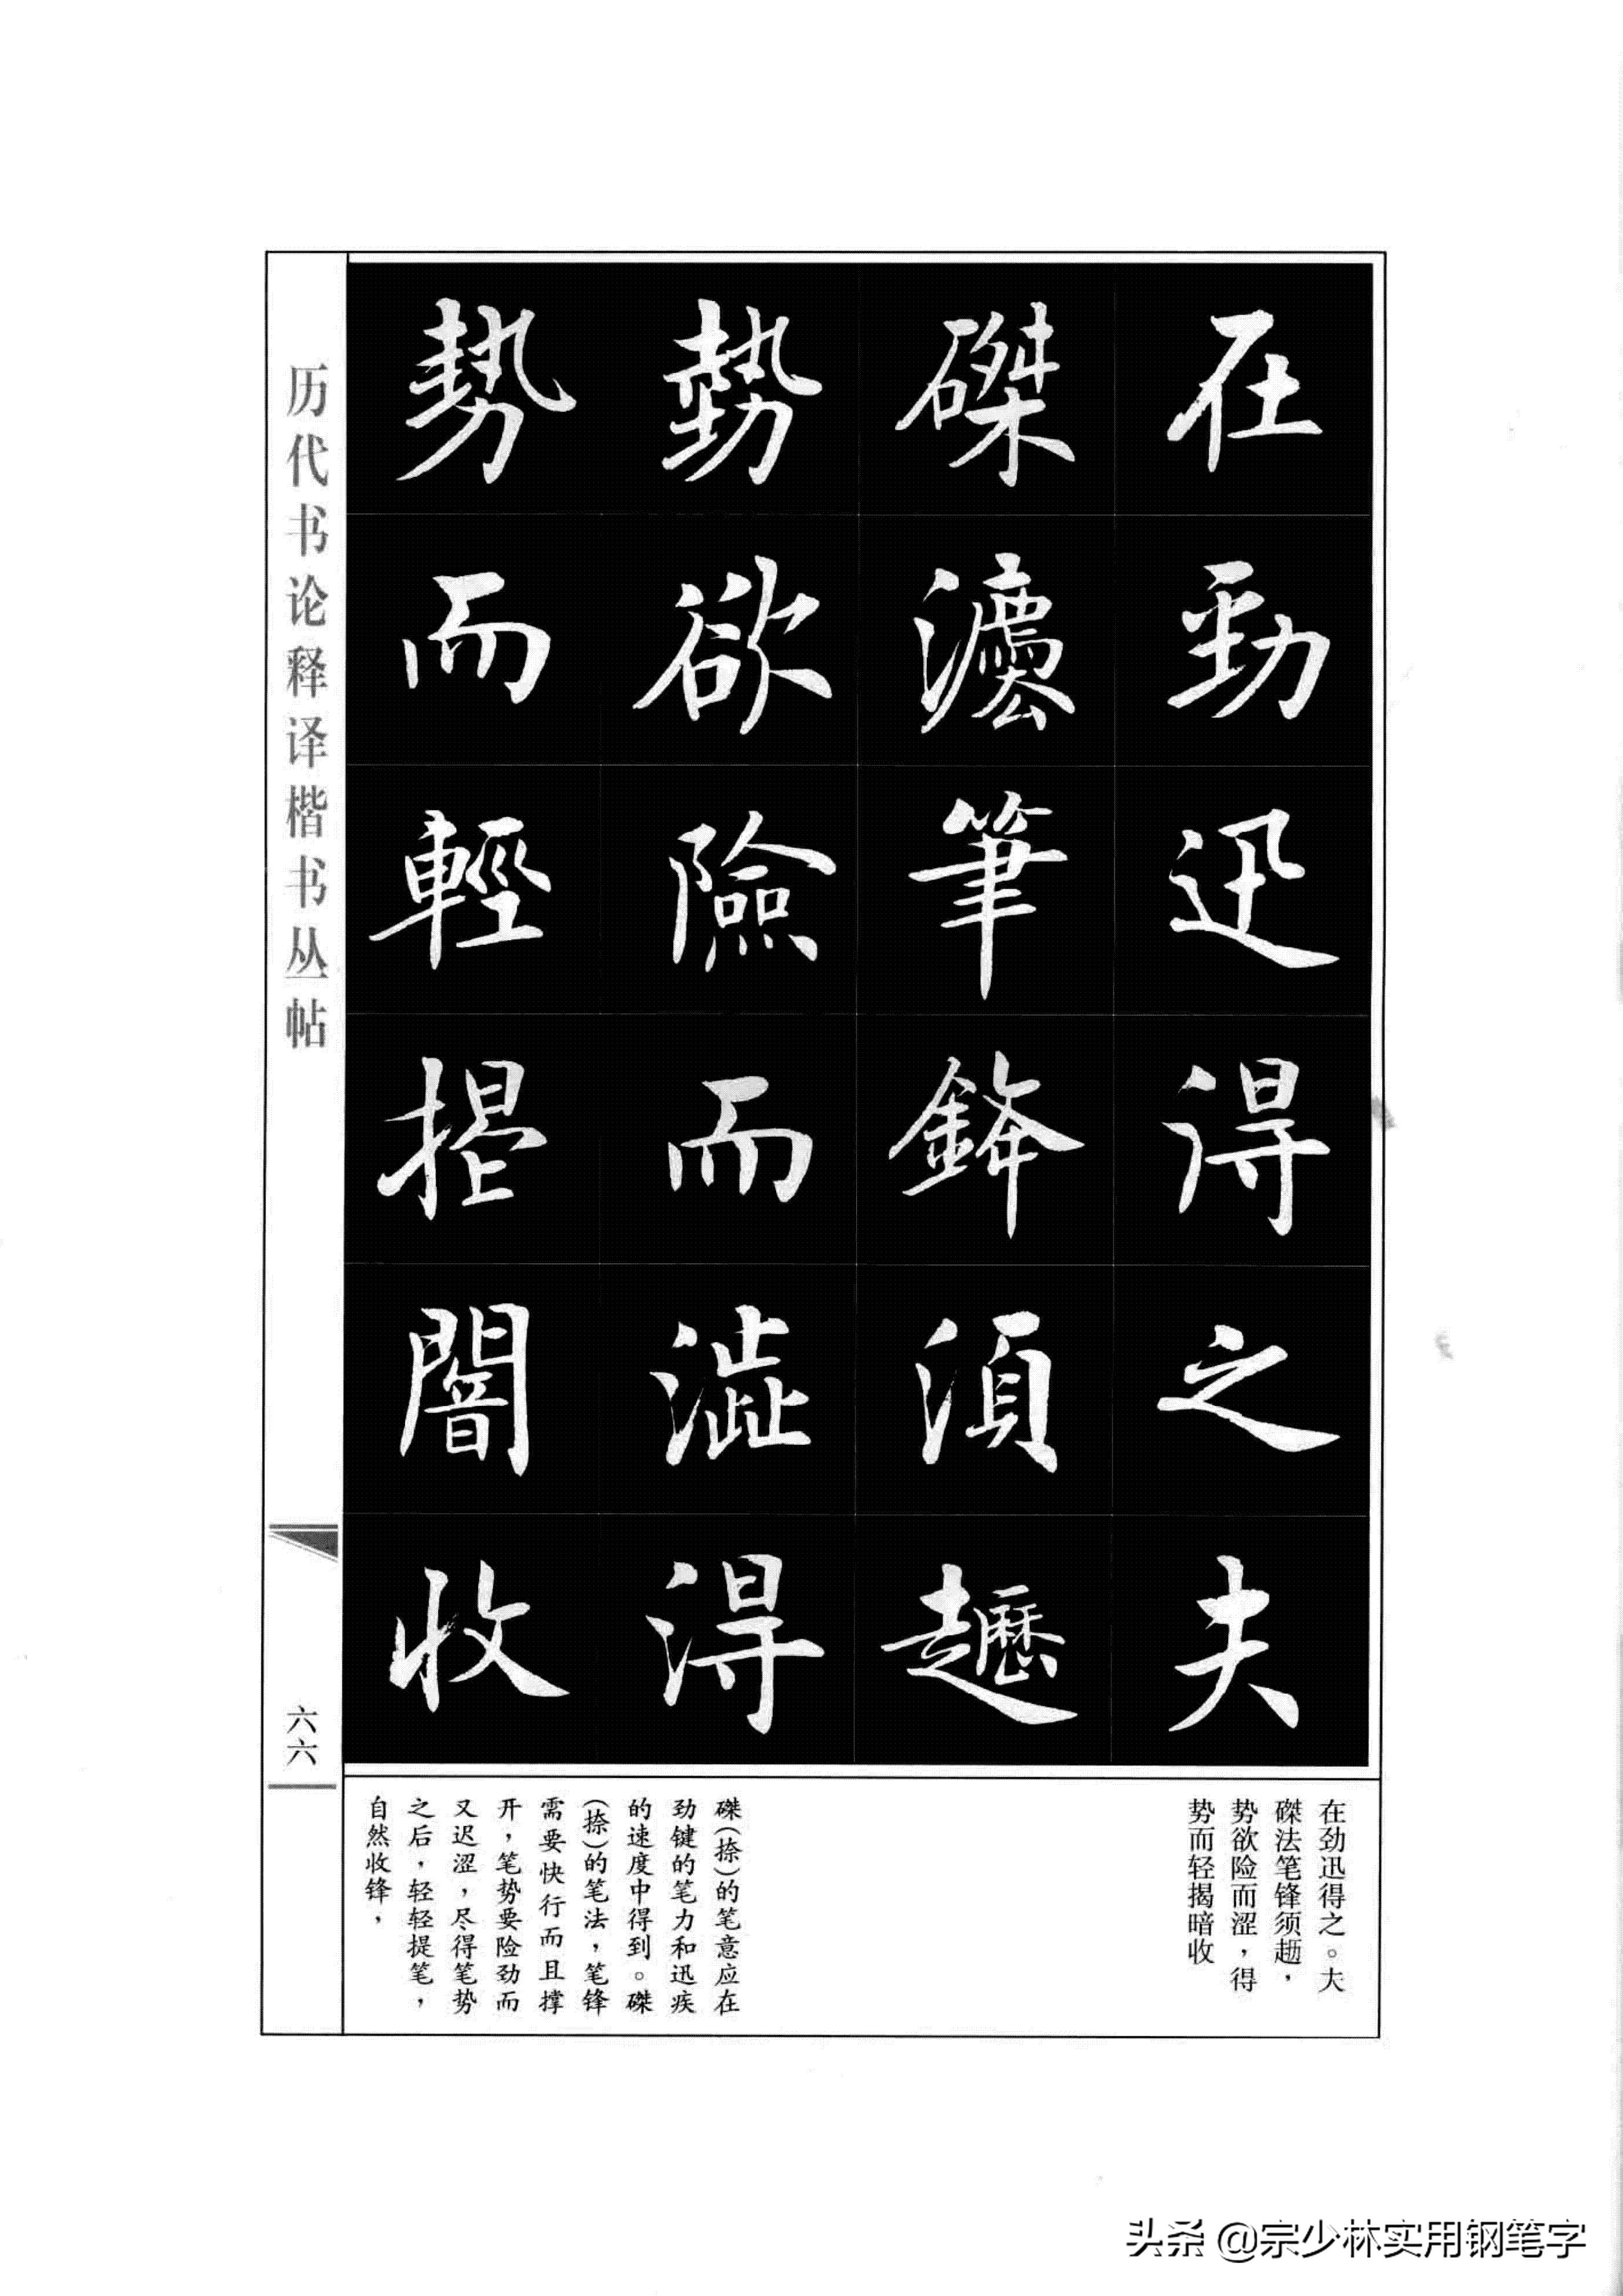 在勁迅得之夫
磔法筆鋒須趯
勢欲險而澀得
勢而輕揭闇收
历代书论释译楷书丛帖
六六
在劲迅得之。夫
磔法笔锋须
势欲险而涩，得
势而轻揭暗收
磔(捺)的笔意应在
劲键的笔力和迅疾
的速度中得到。磔
(捺)的笔法，笔锋
需要快行而且撑
开，笔势要险劲而
又迟涩，尽得笔势
之后，轻轻提笔，
自然收锋，
头条 @宗少林实用钢笔字